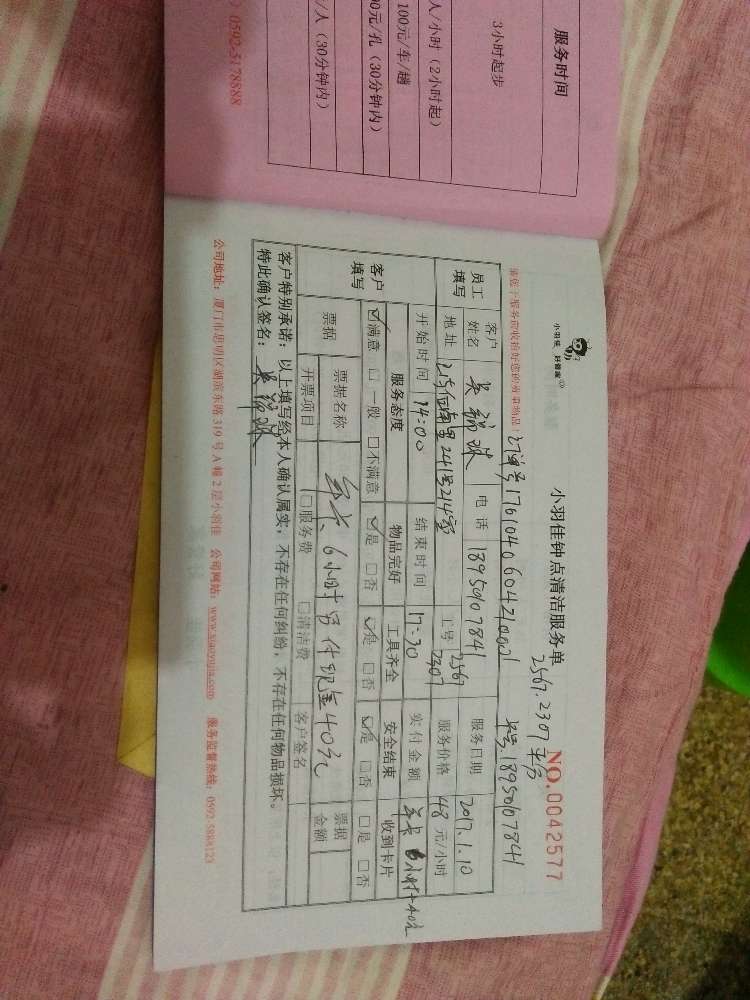 服务时间
3小时起步
人/小时（2小时起）
100元/车/趟
00元/孔（30分钟内）
/人（30分钟内）
0592-5178888
小羽佳 好管家
小羽佳钟点清洁服务单
2567.2307平台
NO.0042577
请您于服务前收拾好您的贵重物品！
订单号1761040604210001
卡号:18950107841
员工填写
客户姓名
吴
电话
18950107841
工号
2567
2307
服务日期
2017.1.10
地址
215 241号214室
服务价格
48元/小时
开始时间
14:00
结束时间
17:30
实付金额
年卡6小时+40元
客户填写
服务态度
物品完好
工具齐全
安全结束
收到卡片
☑满意 □一般 □不满意
☑是 □否
☑是 □否
☑是 □否
□是 □否
票据
票据名称
年卡、6小时另付现金40元
票据金额
开票项目
□服务费
□清洁费
客户签名
客户特别承诺：以上填写经本人确认属实，不存在任何纠纷，不存在任何物品损坏。
特此确认签名：吴
公司地址：厦门市思明区湖滨东路319号A幢2层小羽佳 公司网站：www.xiaoyujia.com 服务监督热线：0592-5888123